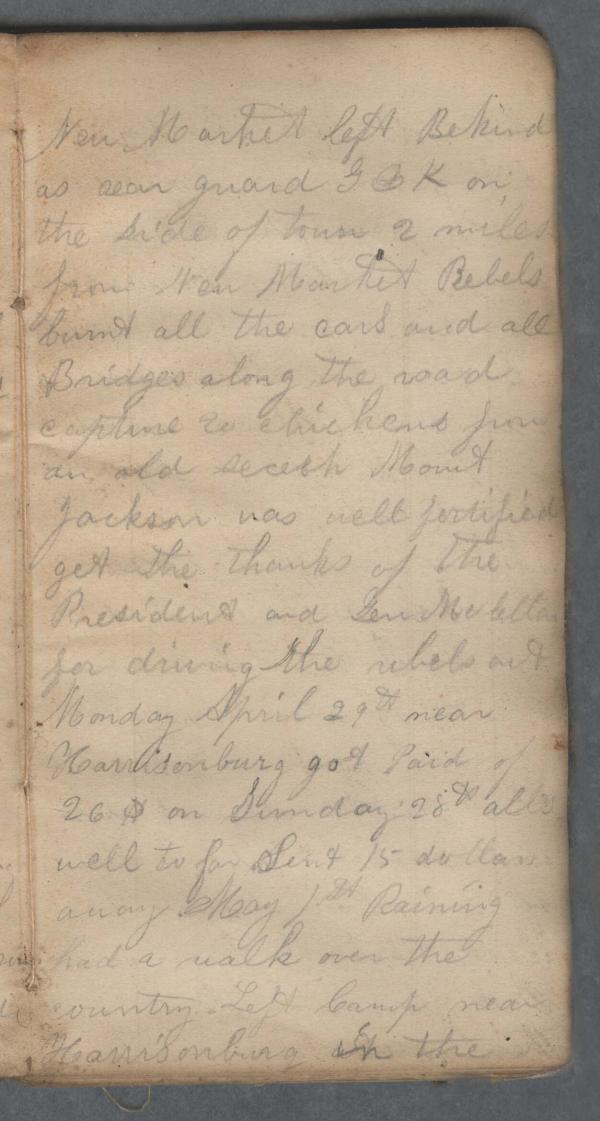 New Market left Behind
as rear guard G B K on
the side of town 2 miles
from New Market Rebels
burnt all the cars and all
Bridges along the road
capture 20 chickens from
an old secesh Mount
Jackson was well fortified
get the thanks of the
President and Gen McClellan
for driving the rebels out
Monday April 29th near
Harrisonburg got Paid of
26 $ on Sunday 28th alls
well so far Sent 15 dollars
away May 1st Raining
had a walk over the
country Left Camp near
Harrisonburg in the